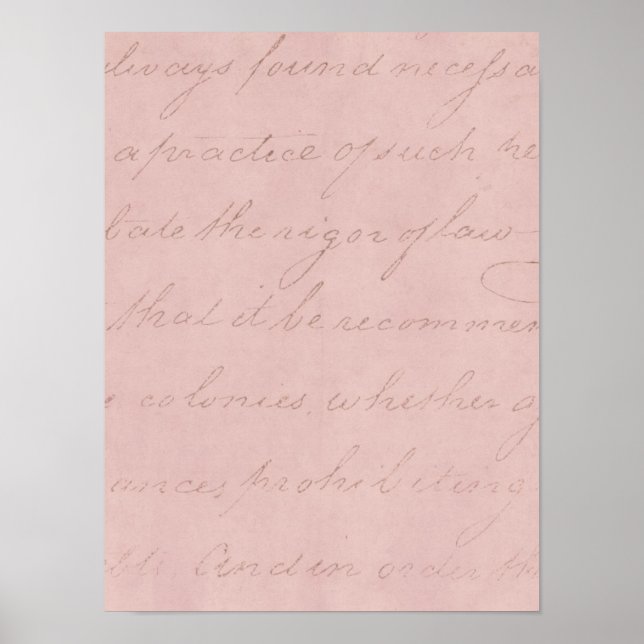 always found necessa
a practice of such re
tate the rigor of law
that it be recommen
e colonies, whether a
ances, prohibiting
And in order th